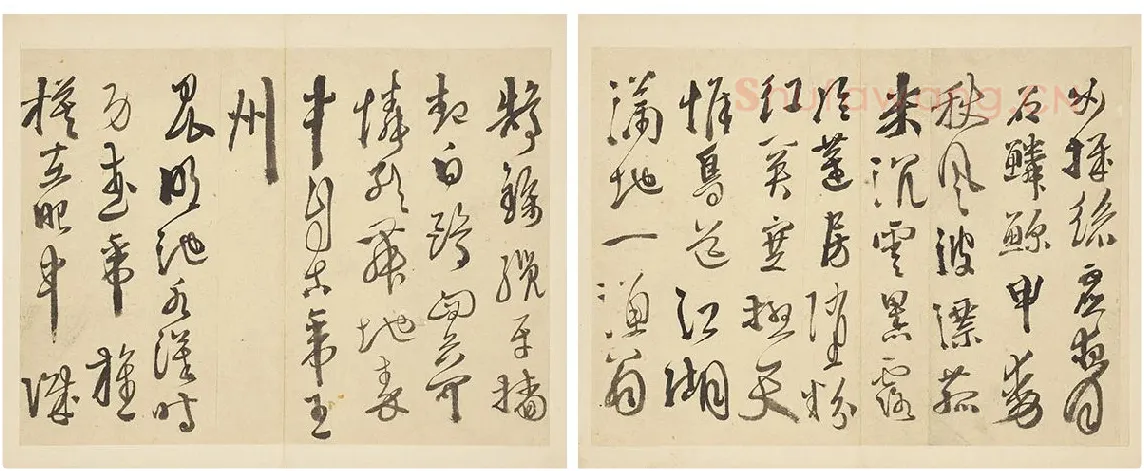 鵠錦纜牙檣
起白鷗回首可
憐歌舞地秦
中自古帝王
州
昆明池水漢時
功武帝旌
旗在眼中織
女機絲虛夜月
石鱗鯨甲動
秋風波漂菰
米沉雲黑露
冷蓮房墜粉
紅關塞極天
惟鳥道江湖
滿地一漁翁
ShufaWang.CN